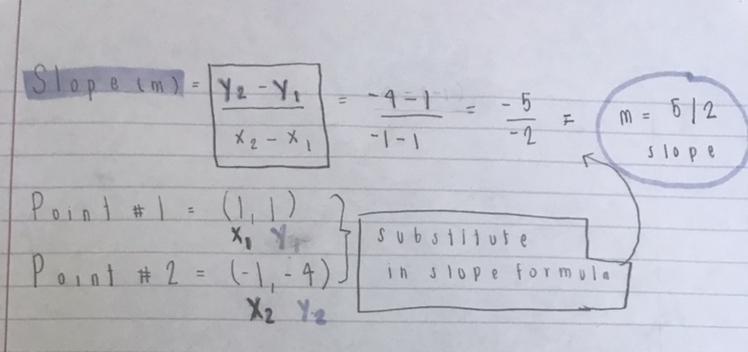 Slope (m) = y₂ - y₁ / x₂ - x₁ = -4 - 1 / -1 - 1 = -5 / -2 = m = 5/2
slope
Point #1 = (1, 1)
x₁ y₁
Point #2 = (-1, -4)
x₂ y₂
substitute
in slope formula